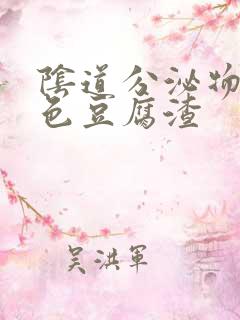 陰道分泌物
色豆腐渣
吴洪軍